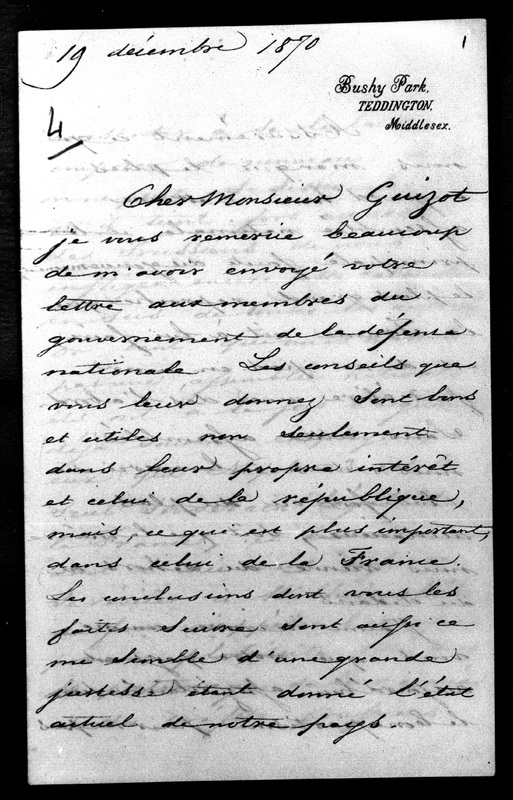 19 décembre 1870
1
Bushy Park,
TEDDINGTON,
Middlesex.
4
Cher Monsieur Guizot
je vous remercie beaucoup
de m'avoir envoyé votre
lettre aux membres du
gouvernement de la défense
nationale Les conseils que
vous leur donnez sont bons
et utiles non seulement
dans leur propre intérêt
et celui de la république,
mais, ce qui est plus important,
dans celui de la France.
Les conclusions dont vous les
faites suivre sont aussi ce
me semble d'une grande
justesse étant donné l'état
actuel de notre pays.